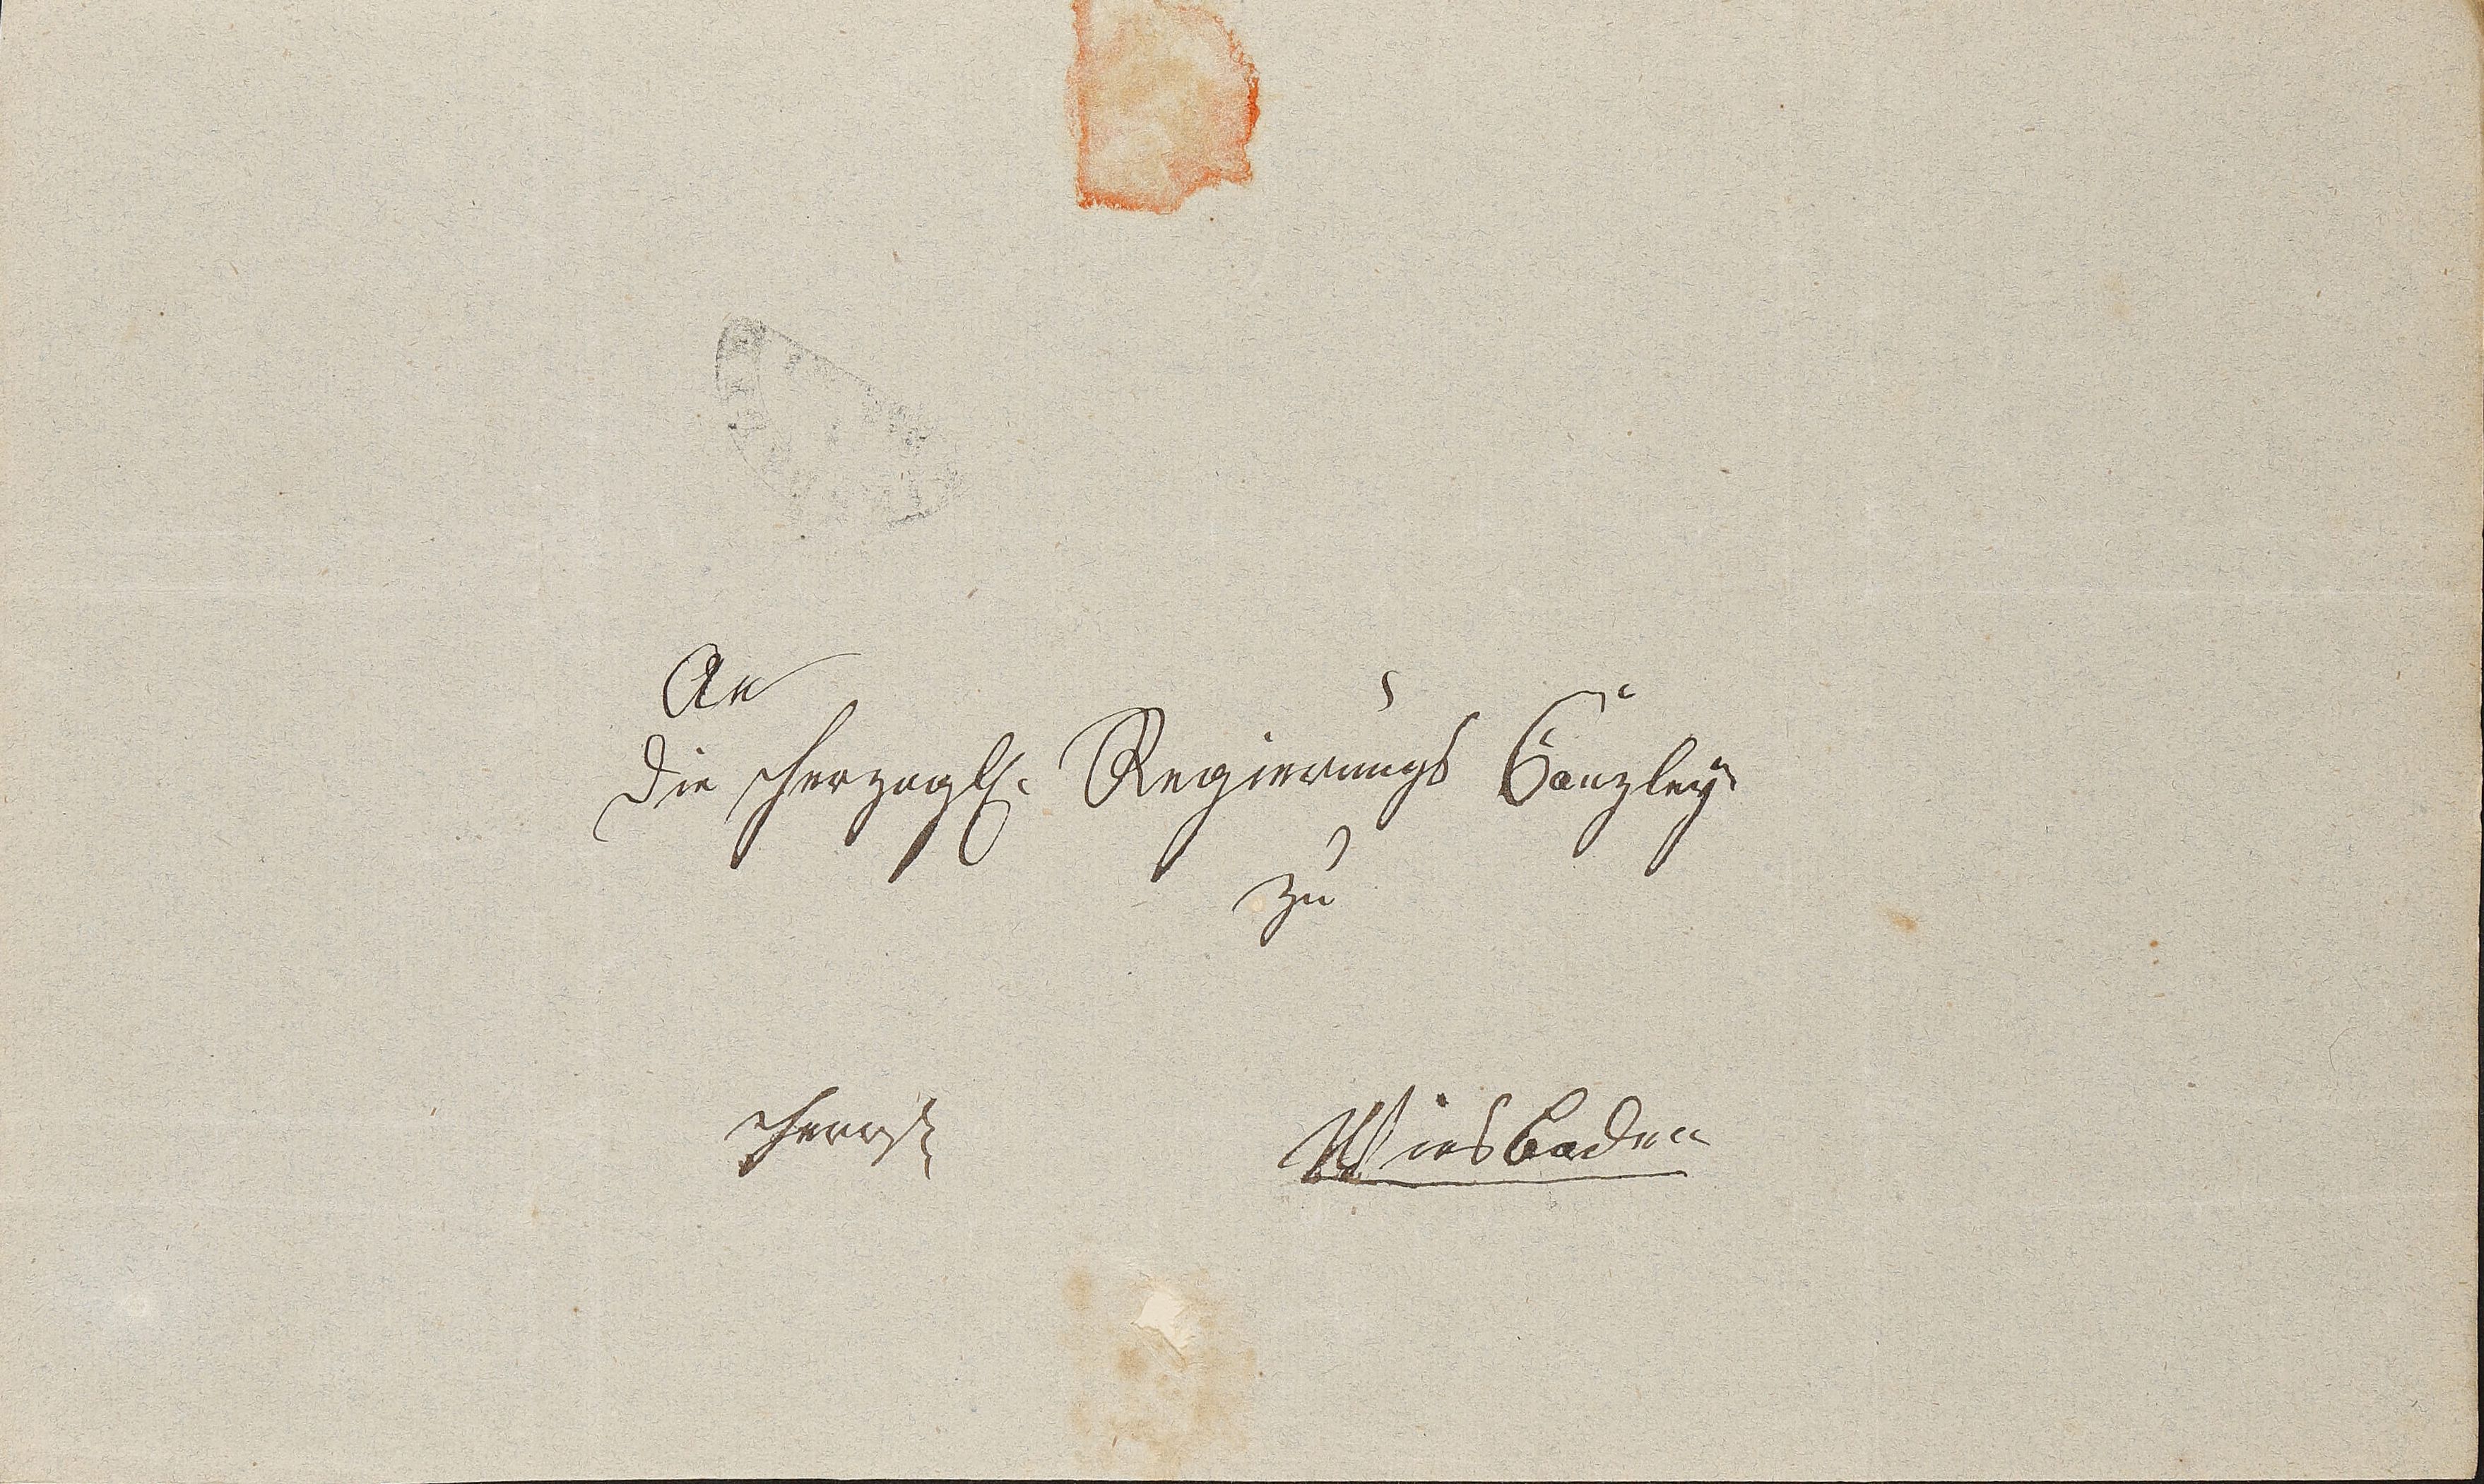 An
die Herzogl. Regierungs Canzley
zu
Herrsch.
Wiesbaden